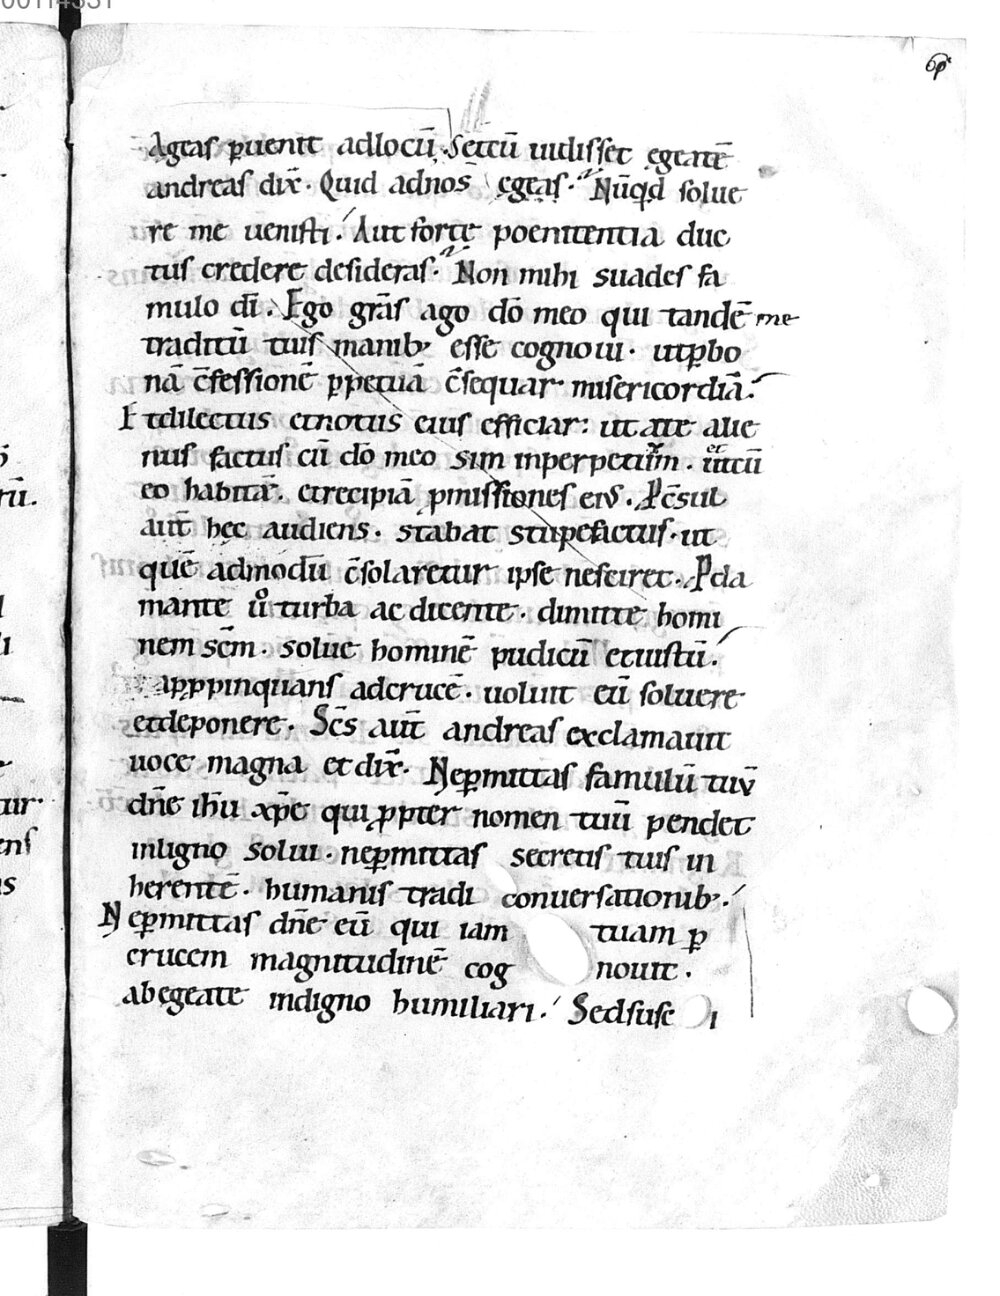 Ageas ꝑuenit adlocū. Setcū uidisset egeatē
andreas dix̄. Quid adnos egeas. Nūqd solue
re me uenisti. Aut forte poenitentia duc
tus credere desideras. Non mihi suades fa
mulo dī. Ego gr̄as ago dō meo qui tandē me
traditū tuis manib; esse cognoui. utꝑ bo
nā c̄fessionē ꝑpetuā c̄sequar misericordiā.
Etdilectus etnotus eius efficiar: ut a te alie
nus factus cū dō meo sim inperpetuū. et cū
eo habitā. etrecipiā ꝓmissiones ei. Pc̄sul
aut̄ hec audiens. stabat stupefactus. ut
quē admodū c̄solaretur ipse nesciret.
mante ů turba ac dicente. dimitte homi
nem sc̄m. solue hominē pudicū etiustū.
aꝓpinquans adcrucē. uoluit eū soluere
etdeponere. Sc̄s aut̄ andreas exclamauit
uoce magna et dix̄. Neꝑmittas famulū tuū
dn̄e ihū xp̄e qui ꝓpter nomen tuū pendet
inligno solui. neꝑmittas secretis tuis in
herentē. humanis tradi conuersationib;.
Neꝑmittas dn̄e eū qui iam tuam ꝑ
crucem magnitudinē cog nouit.
abegeate indigno humiliari. Sedsusc i